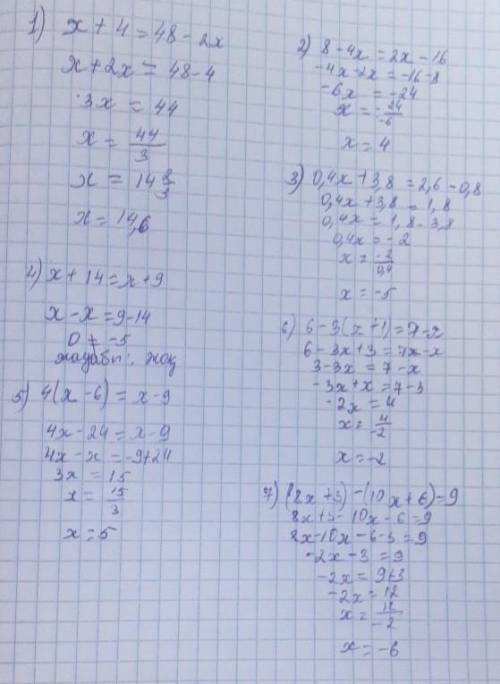 1) x + 4 = 48 - 2x
x + 2x = 48 - 4
3x = 44
x = 44/3
x = 14 2/3
x = 14,6
2) 8 - 4x = 2x - 16
-4x - 2x = -16 - 8
-6x = -24
x = -24/-6
x = 4
3) 0,4x + 3,8 = 2,6 - 0,8
0,4x + 3,8 = 1,8
0,4x = 1,8 - 3,8
0,4x = -2
x = -2/0,4
x = -5
4) x + 14 = x + 9
x - x = 9 - 14
0 ≠ -5
жауабы: жоқ
5) 4(x - 6) = x - 9
4x - 24 = x - 9
4x - x = -9 + 24
3x = 15
x = 15/3
x = 5
6) 6 - 3(x + 1) = 7 - x
6 - 3x + 3 = 7x - x
3 - 3x = 7 - x
-3x + x = 7 - 3
-2x = 4
x = 4/-2
x = -2
7) (8x + 3) - (10x + 6) = 9
8x + 3 - 10x - 6 = 9
8x - 10x - 6 - 3 = 9
-2x - 3 = 9
-2x = 9 + 3
-2x = 12
x = 12/-2
x = -6